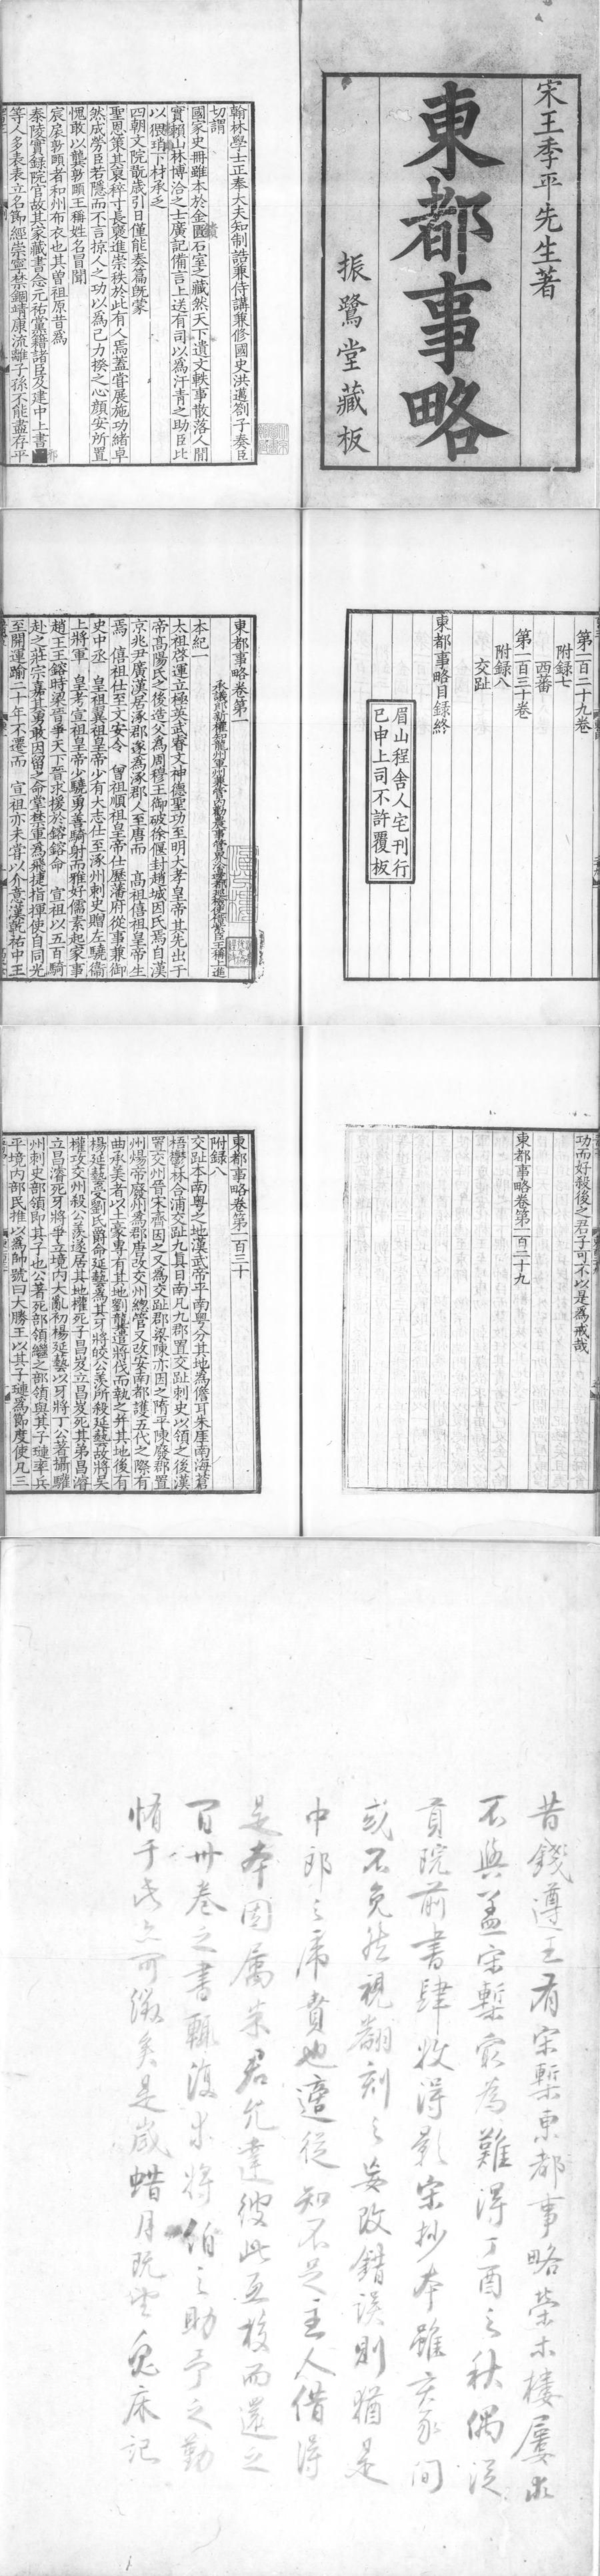 宋王季平先生著
東都事略
振鷺堂藏板
翰林學士正奉大夫知制誥兼侍講兼修國史洪邁劄子奏臣
切謂
國家史冊雖本於金匱石室之藏然天下遺文軼事散落人間
實賴山林博洽之士廣記備言上送有司以為汗青之助臣比
以猥瑣下材承乏
四朝文院翫歲引日僅能奏篇旣蒙
聖恩策其裒稡寸長褒進崇秩於此有人焉蓋嘗展施功緒卓
然成勞臣若隱而不言掠人之功以為己力揆之心顏安所置
愧敢以龔敦頤王稱姓名冒聞
宸扆敦頤者和州布衣也其曾祖原昔為
泰陵實錄院官故其家藏書念元祐黨籍諸臣及建中上書
等人多表表立名節經崇寧禁錮靖康流離子孫不能盡存平
第一百二十九卷
附録七
西蕃
第一百三十卷
附録八
交趾
東都事略目録終
眉山程舍人宅刊行
已申上司不許覆板
東都事略卷第一
承議郎新權知龍州軍州兼管內勸農事管界沿邊都巡檢使借紫臣王稱上進
本紀一
太祖啓運立極英武睿文神德聖功至明大孝皇帝其先出于
帝高陽氏之後造父為周穆王御破徐偃封趙城因氏焉自漢
京兆尹廣漢居涿郡遂為涿郡人至唐而 高祖僖祖皇帝生
焉 僖祖仕至文安令 曾祖順祖皇帝仕歷藩府從事兼御
史中丞 皇祖翼祖皇帝少有大志仕至涿州刺史贈左驍衛
上將軍 皇考宣祖皇帝少驍勇善騎射而雅好儒素起家事
趙王王鎔時梁晉爭天下晉求援於鎔鎔命 宣祖以五百騎
赴之莊宗嘉其勇敢因留之命掌禁軍為飛捷指揮使自同光
至開運踰二十年不遷而 宣祖亦未嘗以介意漢乾祐中王
功而好殺後之君子可不以是為戒哉
東都事略卷第一百二十九
東都事略卷第一百三十
附録八
交趾本南粤之地漢武帝平南粤分其地為儋耳朱崖南海蒼
梧鬱林合浦交趾九真日南凡九郡置交趾刺史以領之後漢
置交州晉宋齊因之又為交趾郡梁陳亦因之隋平陳廢郡置
州煬帝廢州為郡唐改交州總管又改安南都護五代之際有
曲承美者以土豪專有其地劉龑遣將伐而執之并其地後有
楊延藝受劉氏爵命延藝為其牙將皎公羨所殺延藝故將吳
權攻交州殺公羨遂居其地權死子昌岌立昌岌死其弟昌濬
立昌濬死牙將爭立境內大亂初楊延藝以牙將丁公著攝驩
州刺史部領即其子也公著死部領繼之部領與其子璉率兵
平境內部民推以為帥號曰大勝王以其子璉為節度使凡三
昔錢遵王有宋槧東都事略榮木樓屢求
不與蓋宋槧最為難得丁酉之秋偶從
貢院前書肆收得影宋抄本雖亥豕間
或不免然視翻刻之妄改錯誤則猶是
中郎之虎賁也適從知不足主人借得
是本因屬朱君允達彼此互校而還之
百卅卷之書輒復求將伯之助予之勤
惰于此亦可徵矣是歲蜡月既望兔床記